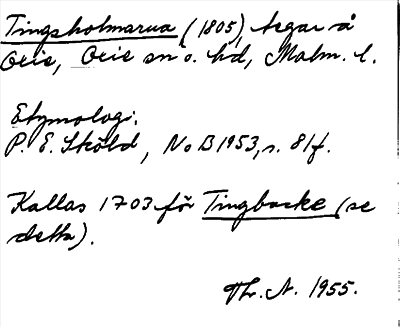 Tingsholmarna (1805), tegar å
Oxie, Oxie sn o. hd, Malm. l.
Etymologi:
P. E. Sköld, NoB 1953, s. 81f.
Kallas 1703 för Tingbacke (se
detta).
Th. N. 1955.